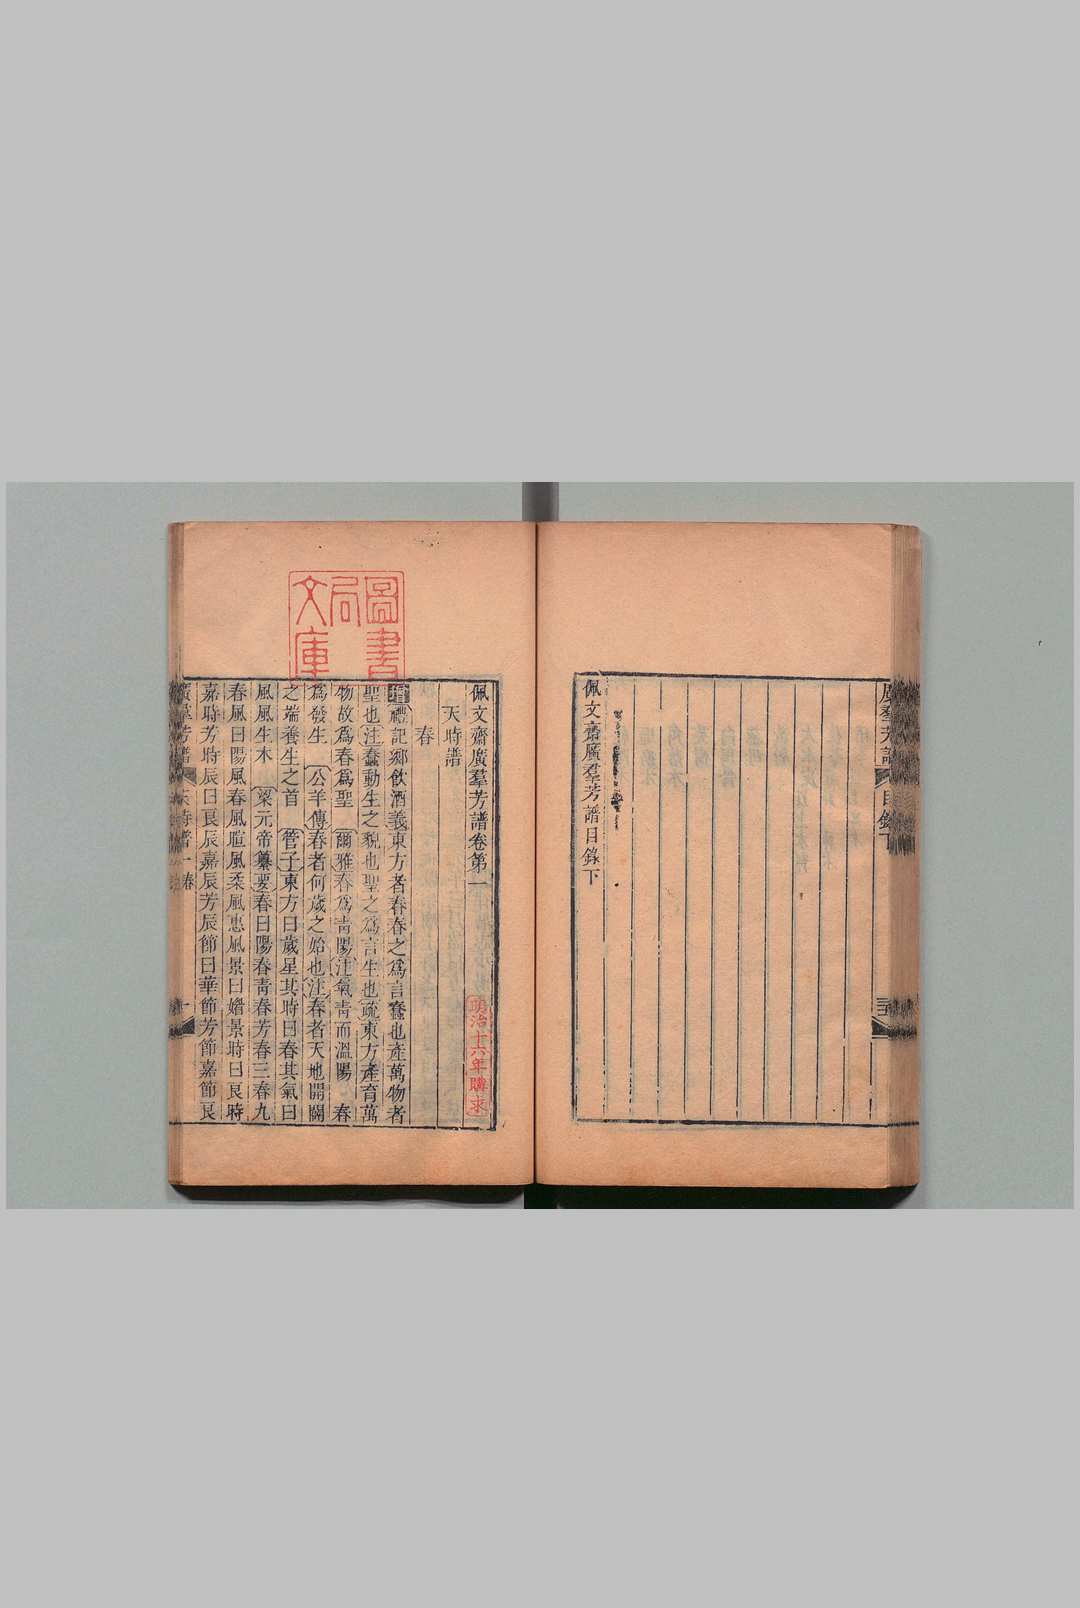 廣羣芳譜 目錄下 三十
佩文齋廣羣芳譜目錄下
佩文齋廣羣芳譜卷第一
明治十六年購求
天時譜
春
圖書局文庫
增禮記鄉飲酒義東方者春春之爲言蠢也產萬物者
聖也注蠢動生之貌也聖之爲言生也疏東方產育萬
物故爲春爲聖 爾雅春爲青陽注氣青而溫陽 春
爲發生 公羊傳春者何歲之始也注春者天地開闢
之端養生之首 管子東方曰歲星其時曰春其氣曰
風風生木 梁元帝纂要春曰陽春青春芳春三春九
春風曰陽風春風暄風柔風惠風景曰媚景時曰良時
嘉時芳時辰曰良辰嘉辰芳辰節曰華節芳節嘉節良
廣羣芳譜 天時譜一 春 一